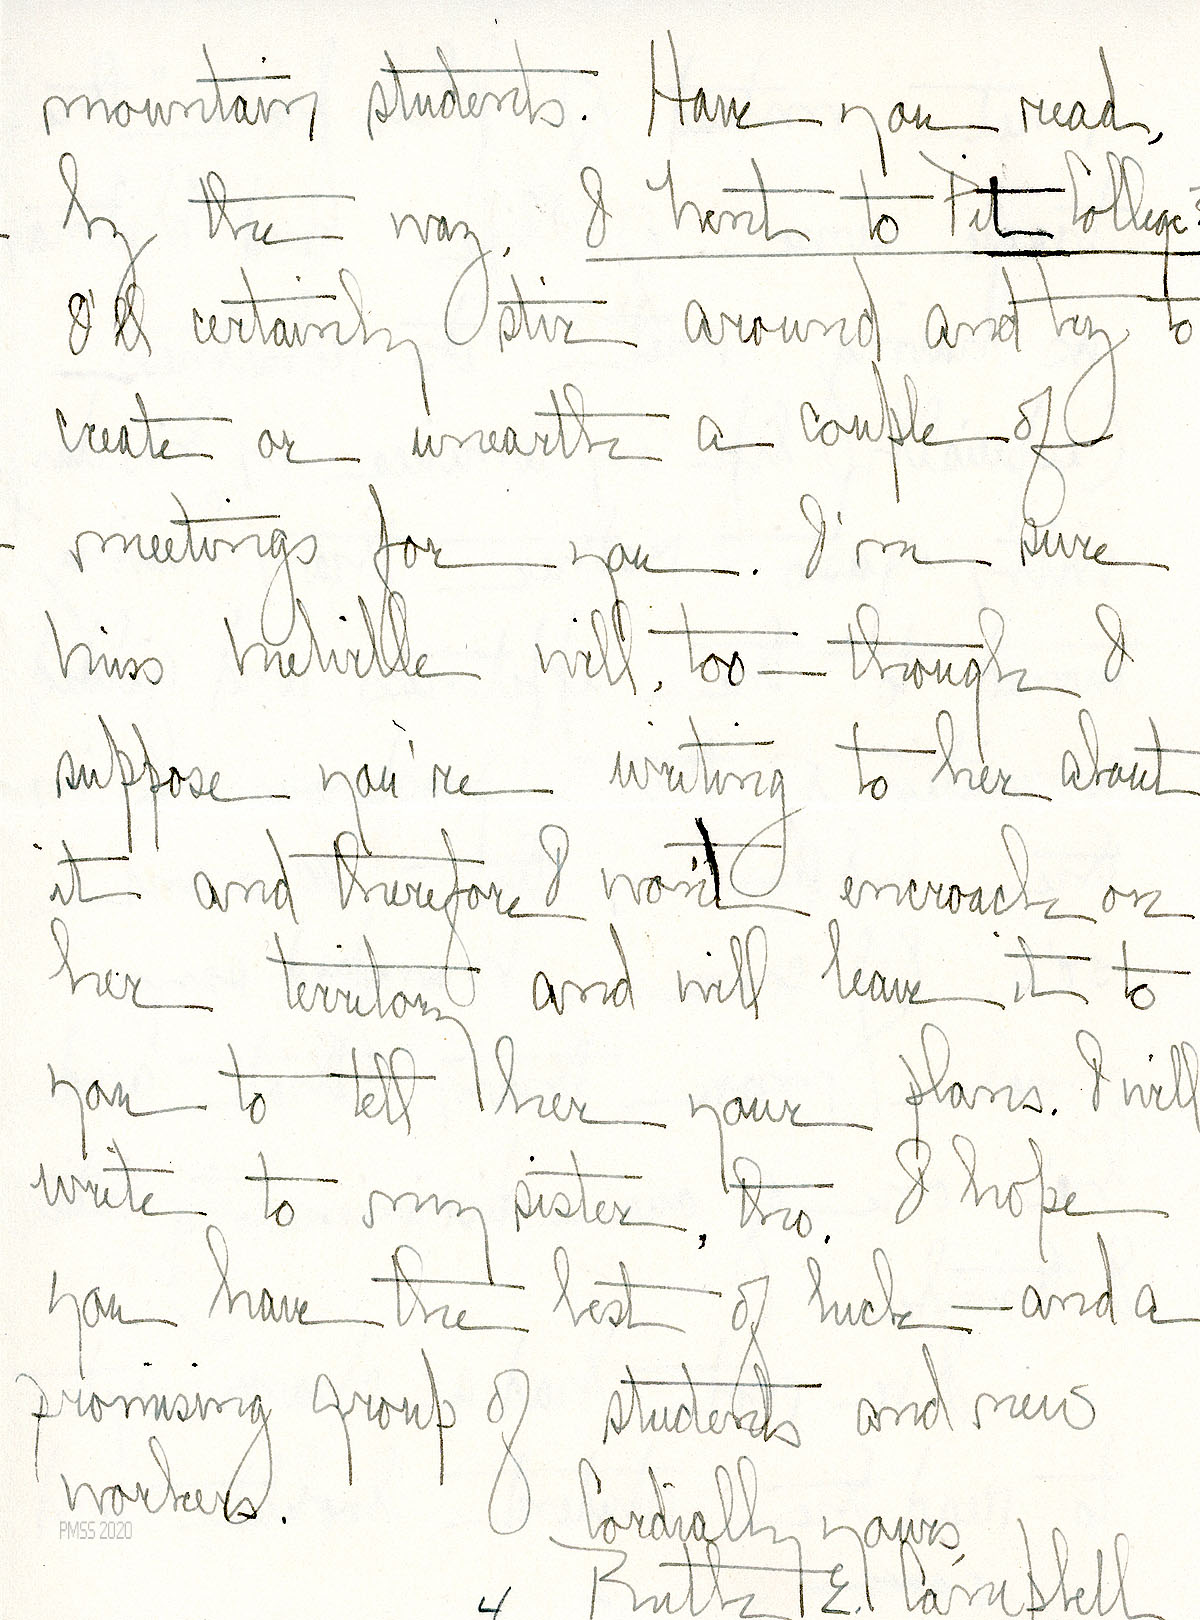 mountain students. Have you read,
by the way, I Went to Pit College?
I'll certainly stir around and try to
create or unearth a couple of
meetings for you. I'm sure
Miss Melville will, too — though I
suppose you're writing to her about
it and therefore I won't encroach on
her territory and will leave it to
you to tell her your plans. I will
write to my sister, tho. I hope
you have the best of luck — and a
promising group of students and new
workers.
PMSS 2020
Cordially yours,
Ruth E. Campbell
4